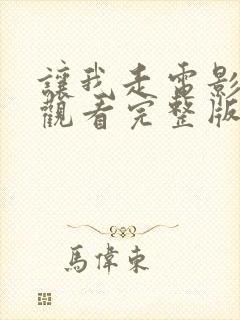 讓我走電影
觀看完整版
馬偉東